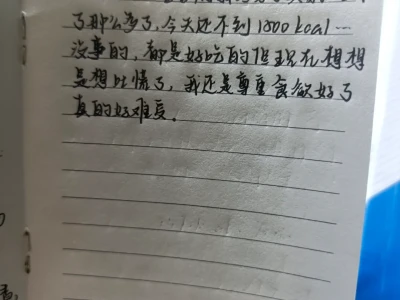 了那么多了，今天还不到1800kcal…
没事的，都是好吃的但现在想想
是想比情了，我还是尊重食欲好了
真的好难受。